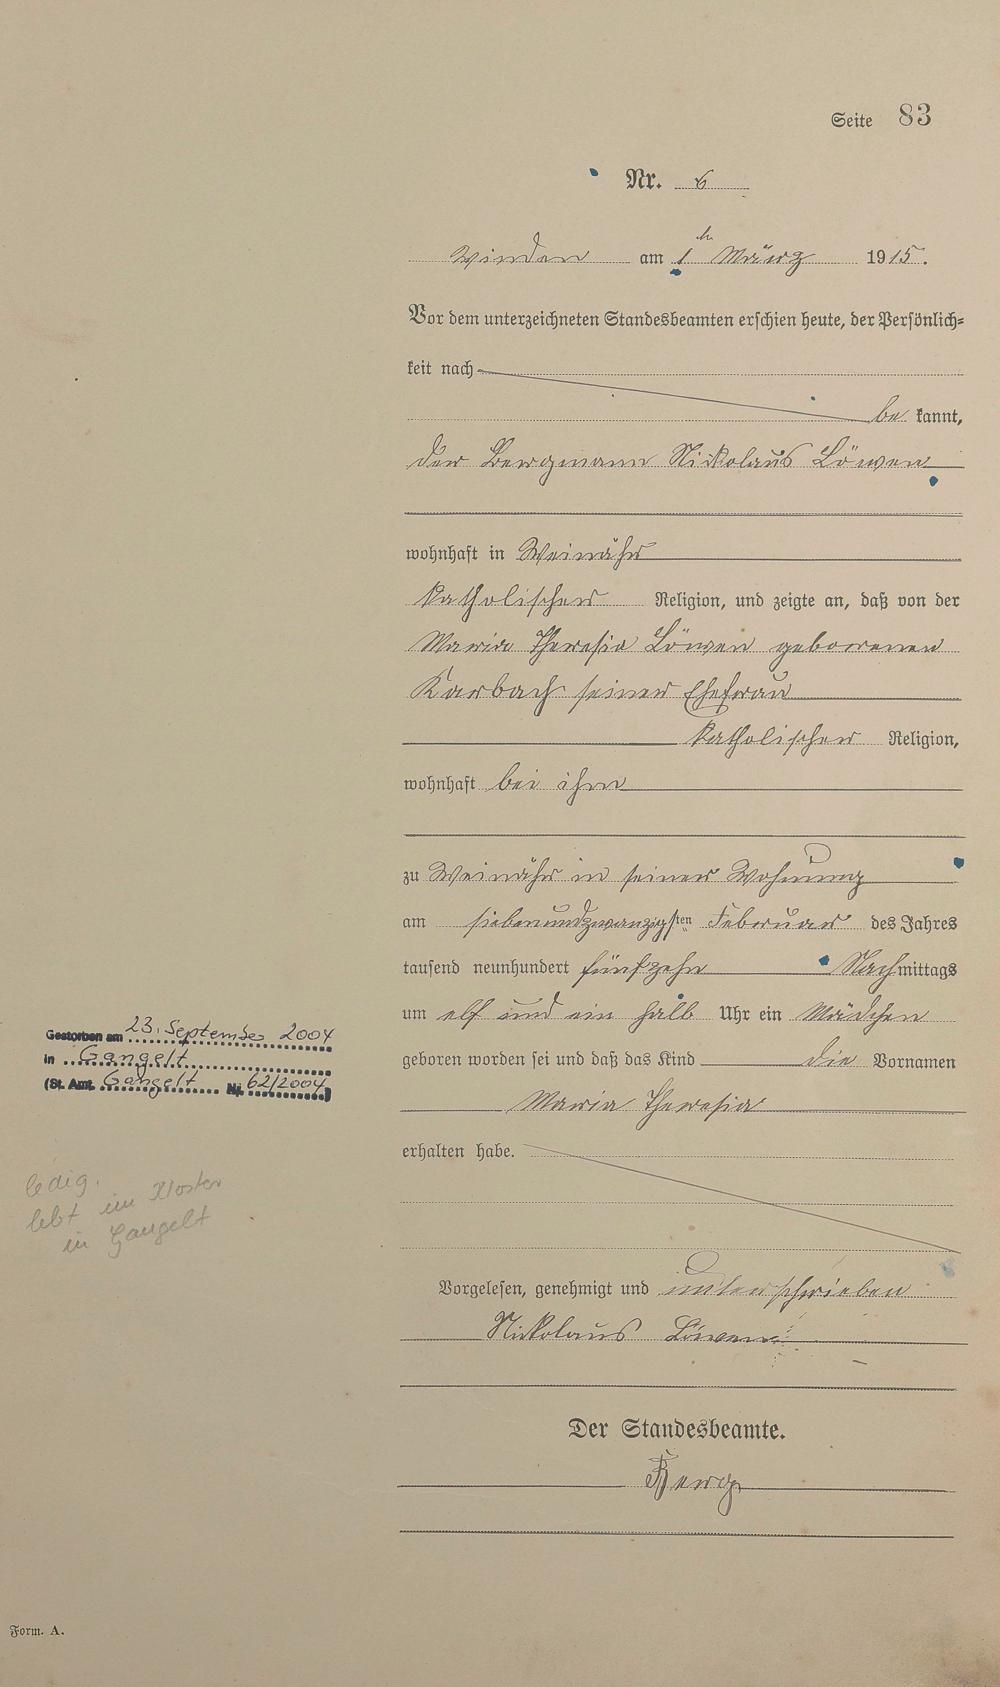 Seite 83
Nr. 6
Winden am 1ten März 1915.
Vor dem unterzeichneten Standesbeamten erschien heute, der Persönlich=
keit nach
be kannt,
der Bergmann Nikolaus Löwen
wohnhaft in Weinähr
katholischer Religion, und zeigte an, daß von der
Maria Theresia Löwen geborenen
Karbach seiner Ehefrau
katholischer Religion,
wohnhaft bei ihm
zu Weinähr in seiner Wohnung
am siebenundzwanzigsten Februar des Jahres
tausend neunhundert fünfzehn Nachmittags
um elf und ein halb Uhr ein Mädchen
geboren worden sei und daß das Kind die Vornamen
Maria Theresia
erhalten habe.
Vorgelesen, genehmigt und unterschrieben
Nikolaus Löwen
Der Standesbeamte.
Berg
Gestorben am 23. September 2004
in Gangelt
(St. Amt. Gangelt Nr. 62/2004)
ledig.
lebt im Kloster
in Gangelt
Form. A.